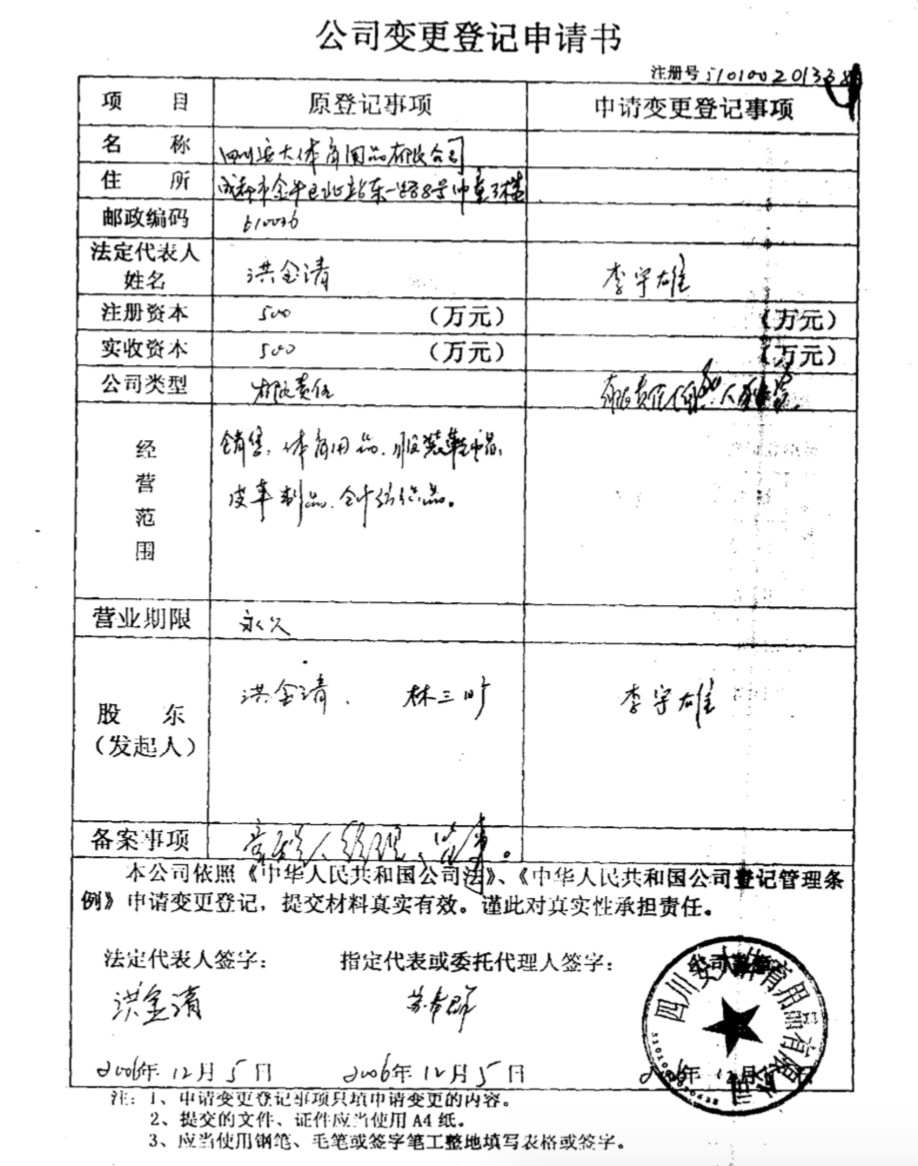 公司变更登记申请书
注册号 5101002013338
项 目 原登记事项 申请变更登记事项
名 称 四川安大体育用品有限公司
住 所 成都市金牛区北站东一路8号中 3楼
邮政编码 610036
法定代表人姓名 洪金清 李宇雄
注册资本 500 (万元) (万元)
实收资本 500 (万元) (万元)
公司类型 有限责任 有限责任
经营范围 销售:体育用品、服装鞋
皮革制品、针纺织品。
营业期限 永久
股 东(发起人) 洪金清、 林三 李宇雄
备案事项 经理、监事。
本公司依照《中华人民共和国公司法》、《中华人民共和国公司登记管理条
例》申请变更登记,提交材料真实有效。谨此对真实性承担责任。
法定代表人签字: 指定代表或委托代理人签字: 公司盖章
洪金清 苏 群
四川安大体育用品有限公司
2006年12月5日 2006年12月5日 2006年12月 日
注:1、申请变更登记事项只填申请变更的内容。
2、提交的文件、证件应当使用A4纸。
3、应当使用钢笔、毛笔或签字笔工整地填写表格或签字。